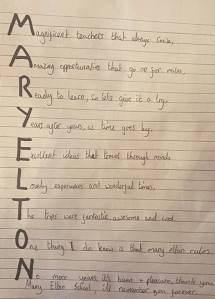 Magnificent teachers that always smile,
Amazing opportunities that go on for miles,
Ready to learn, so lets give it a try,
Years after years, as time goes by,
Excellent ideas that travel through minds
Lovely experiences and wonderful times,
The trips were fantastic awesome and cool
One thing I do know is that mary elton rules.
No more years, its been a pleasure, thankyou
Mary Elton School, ill remember you forever